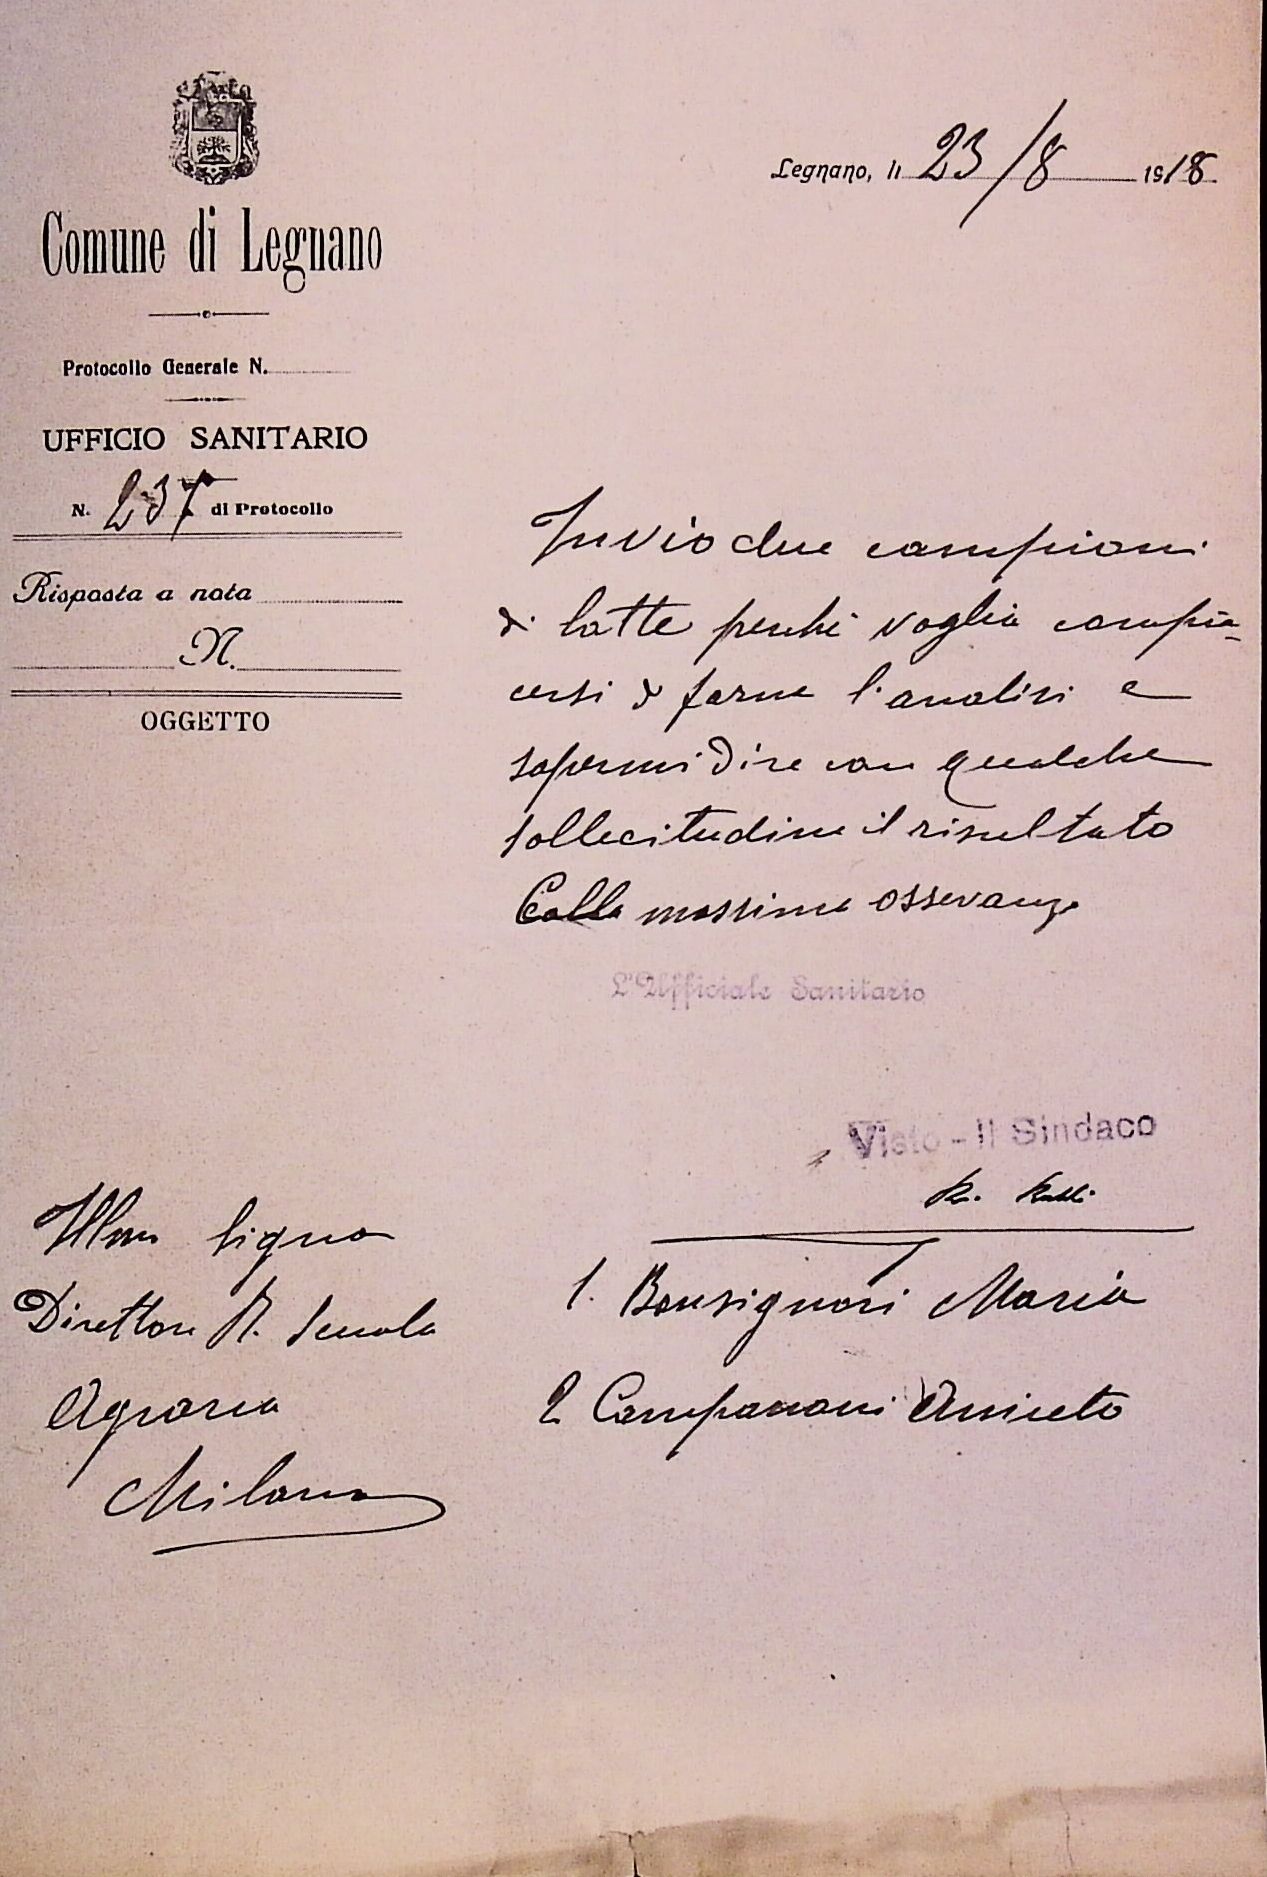 Comune di Legnano
Protocollo Generale N.
UFFICIO SANITARIO
N. 237 di Protocollo
Risposta a nota
N.
OGGETTO
Legnano, li 23/8 1918
Invio due campioni
di latte perchè voglia compia-
cersi di farne l'analisi e
sapermi dire con qualche
sollecitudine il risultato
Colla massima osservanza
L'Ufficiale Sanitario
Visto - Il Sindaco
Ill.mo Signor
Direttore R. Scuola
Agraria
Milano
1. Bonsignori Maria
2 Campanoni Aniceto